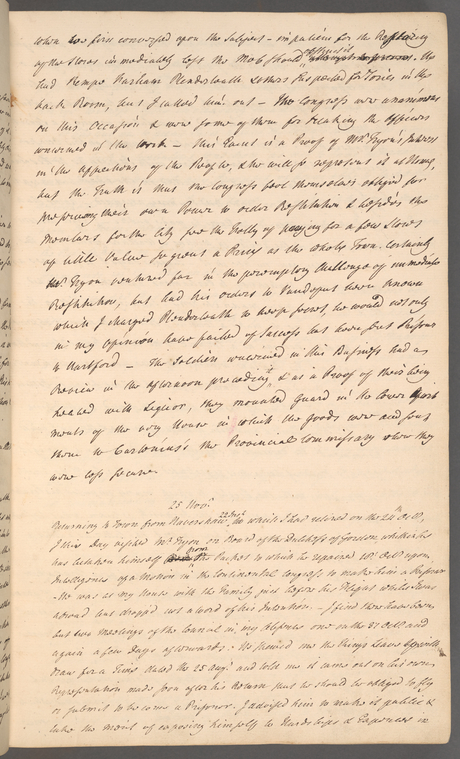 when we first conversed upon the Subject – impatient for the Restoring
of the Stores immediately lest the Mob should
had Kempe Watham Plenderleath & others suspected for Tories in the
back Room, but I called him out – The Congress were unanimous
on this Occasion & were some of them for breaking the Officers
concerned in the Work – This Event is a Proof of Mr Tryon's Interest
in the Affections of the People, & he will so represent it at Home,
but the Truth is that the Congress feel themselves obliged for
preserving their own Power to order Restitution & besides the
Members for the City see the Folly of paying for a few Stores
of little Value so great a Price as the whole Town. Certainly
Mr Tryon ventured far in the peremptory Challenge of immediate
Restitution, but had his orders to Vandeput been known
which I charged Plenderleath to keep secret, he would not only
in my opinion have failed of Success but been sent Prisoner
to Hartford – The Soldiers concerned in this Business had a
Review in the afternoon preceeding it, & as a Proof of their being
heated with Liquor, they mounted Guard in the lower
ments of the very House in which the Goods were and sent
them to Curtenius's the Provincial Commissary where they
were less secure

25 Novr.
Returning to Town from Haverstraw, to which I had retired on the 24th Octr,
I this Day visited Mr Tryon on Board of the Dutchess of Gordon, whither he
has betaken himself from the Packet to which he repaired Octr upon
Intelligence of a Motion in the Continental Congress to make him a Prisoner
– He was at my House with the Family just before his Flight whilst I was
abroad but dropped not a word of his Intention. – I find there have been
but two Meetings of the Council in my absence one on the 31 Octr and
again a few Days afterwards. He shewed me the King's Leave
draw for a Time dated the 28 Augt and told me it came out on his own
Representation made soon after his Return that he should be obliged to fly
or submit to become a Prisoner. I advised him to make it public &
take the merit of exposing himself to Hardships & Expences in